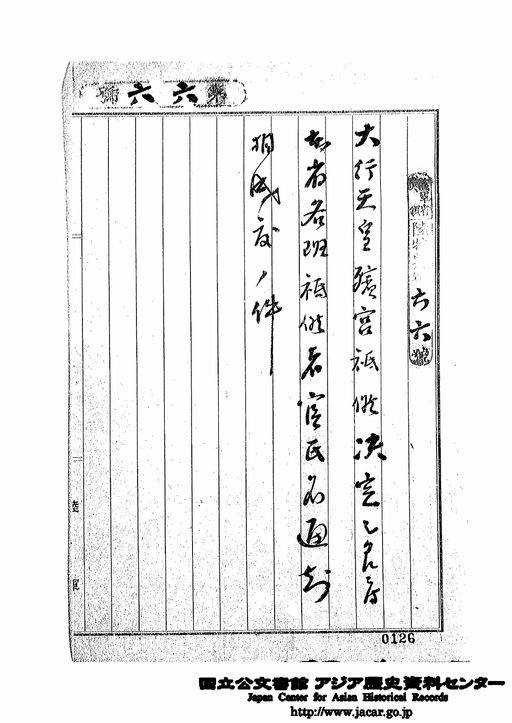 第六六號
六六號
大行天皇殯宮祗候決定
本省各班祗候者官氏名通知
相成度ノ件
陸軍
0126
国立公文書館 アジア歴史資料センター
Japan Center for Asian Historical Records
http://www.jacar.go.jp